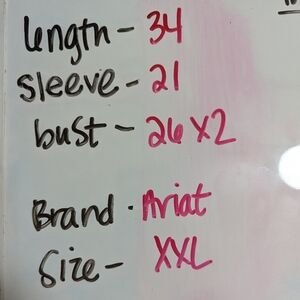 length - 34
sleeve - 21
bust - 26 x 2
Brand - Ariat
Size - XXL